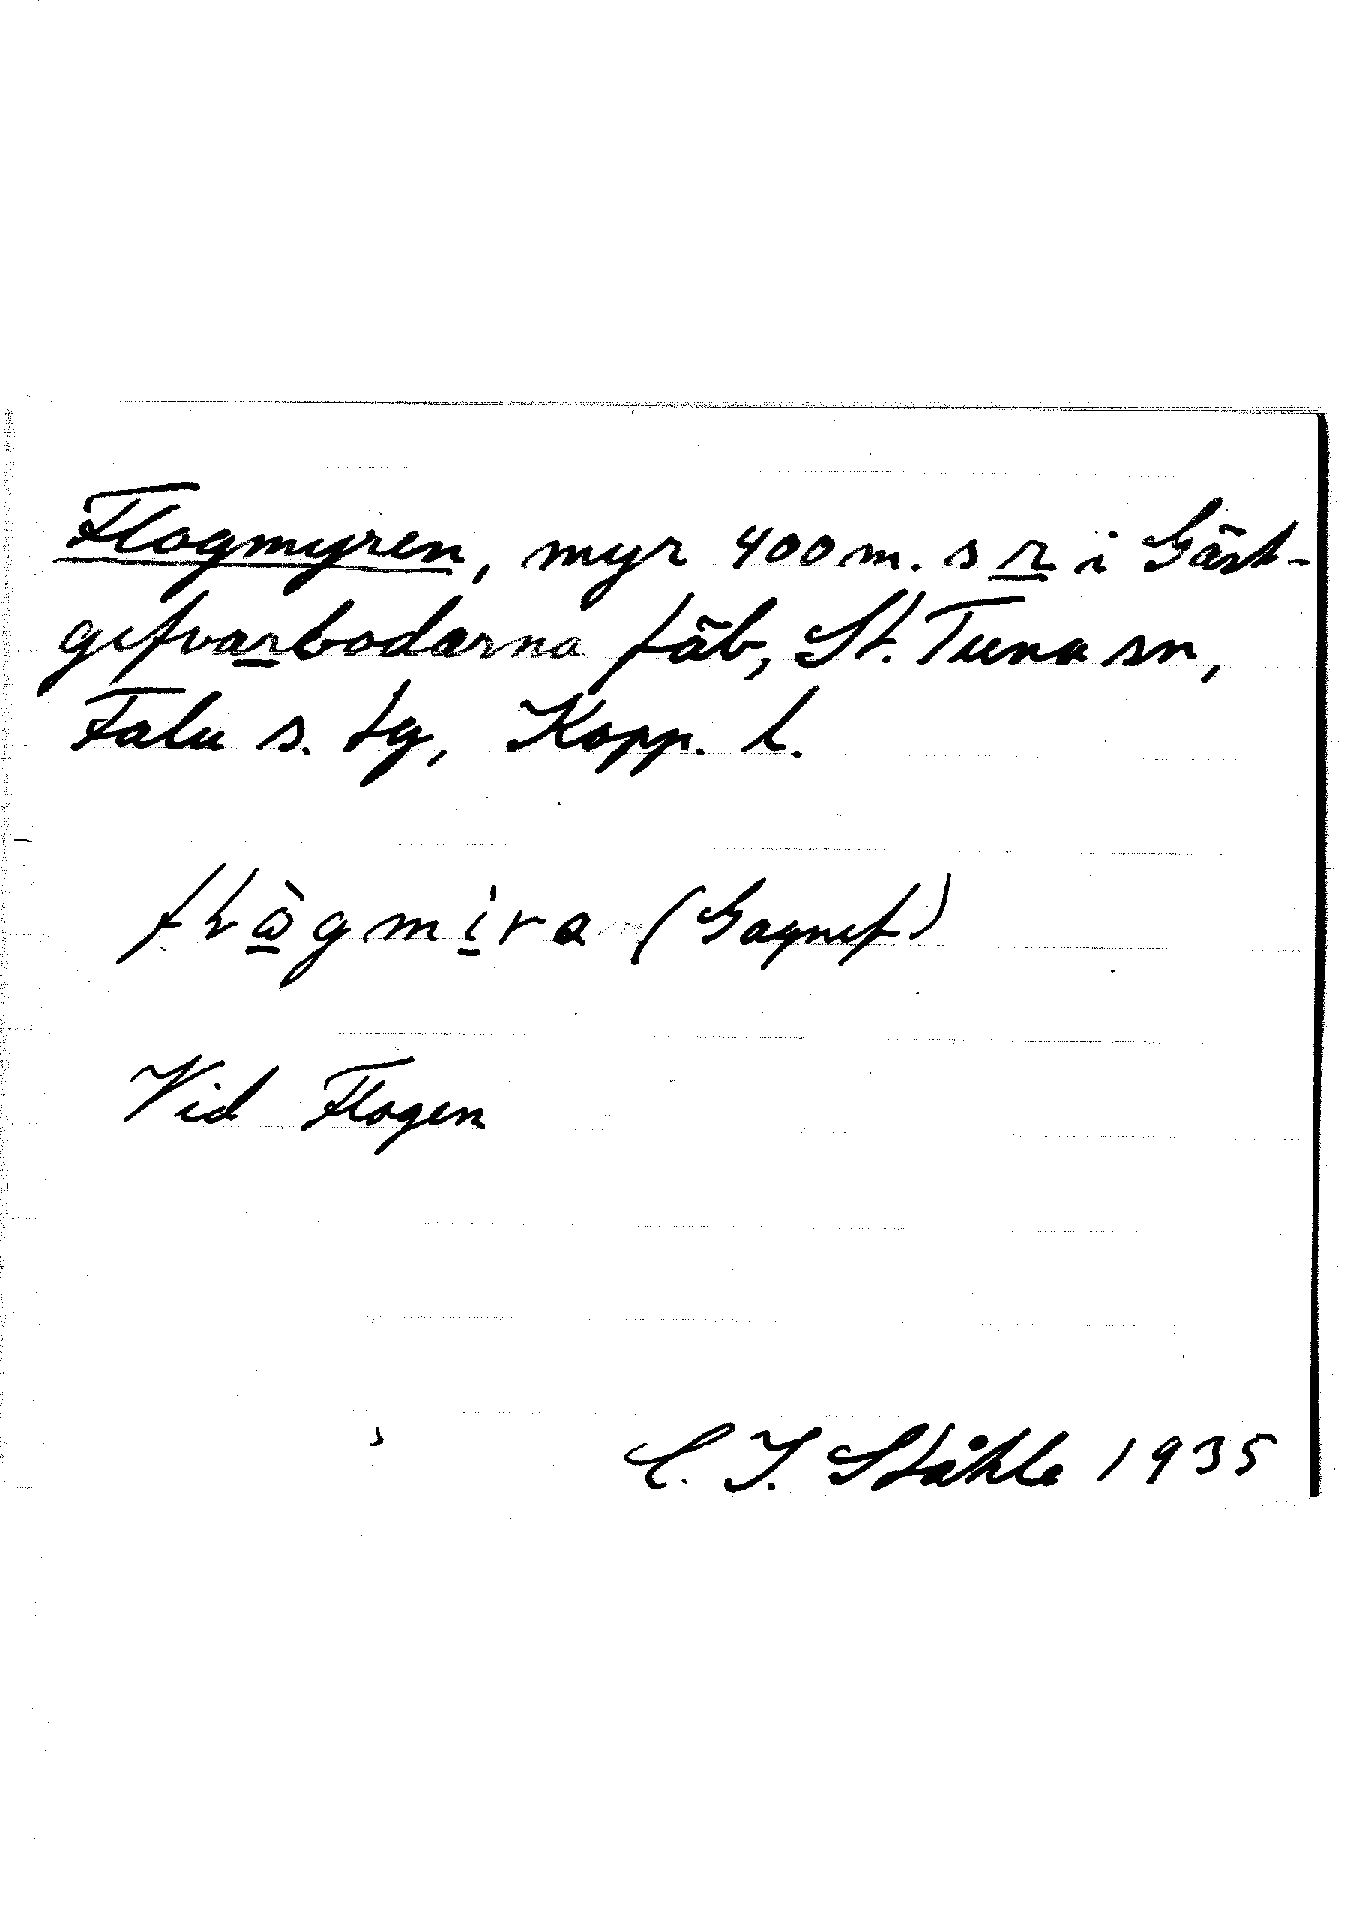 Flogmyren, myr 400 m. s r i Gäst-
gifvarbodarna fäb, St. Tuna sn,
Falu s. tg, Kopp. l.
(Gagnef)
Vid Flogen
C. I. Ståhle 1935